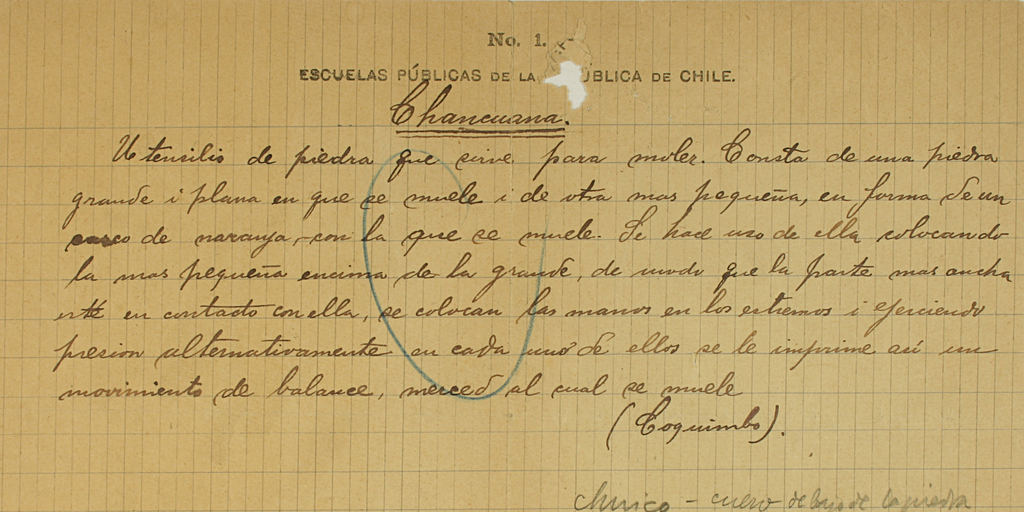 No. 1.
ESCUELAS PÚBLICAS DE LA ÚBLICA DE CHILE.
Chancuana.
Utensilio de piedra que sirve para moler. Consta de una piedra
grande i plana en que se muele i de otra mas pequeña, en forma de un
casco de naranja, con la que se muele. Se hace uso de ella colocando
la mas pequeña encima de la grande, de modo que la parte mas ancha
esté en contacto con ella, se colocan las manos en los estremos i ejerciendo
presion alternativamente en cada uno de ellos se le imprime así un
movimiento de balance, merced al cual se muele
(Coquimbo).
cuero debajo de la piedra